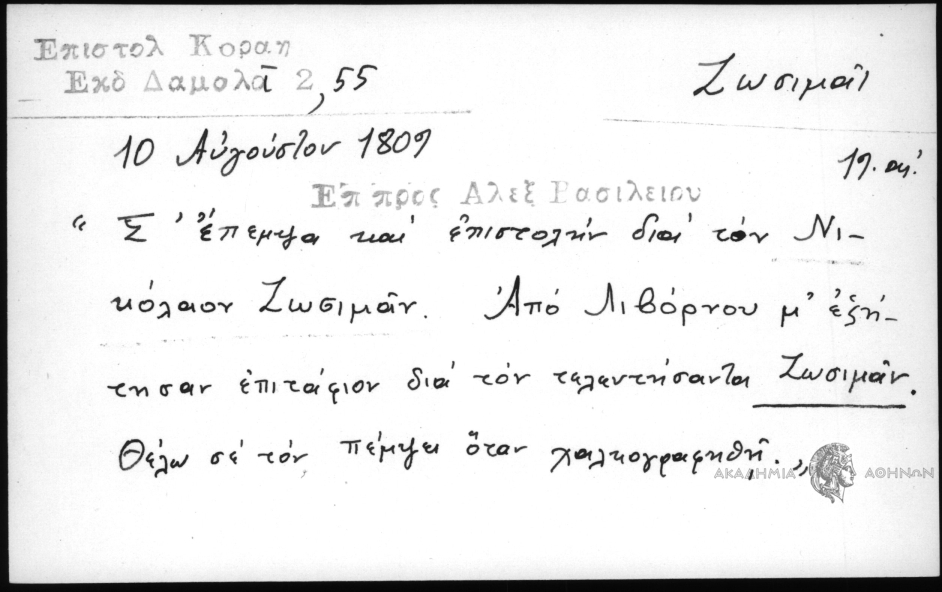 Επιστολ Κοραη
Εκδ Δαμολᾶ 2, 55
Ζωσιμᾶι
10 Αὐγούστου 1809
19. αι.
Επ προς Αλεξ Βασιλειου
“ Σ’ ἔπεμψα καί ἐπιστολήν διά τόν Νι-
κόλαον Ζωσιμᾶν. Ἀπό Λιβόρνου μ’ ἐζή-
τησαν ἐπιτάφιον διά τόν τελευτήσαντα Ζωσιμᾶν.
Θέλω σέ τόν πέμψει ὅταν χαλκογραφηθῇ. „
ΑΚΑΔΗΜΙΑ ΑΘΗΝΩΝ